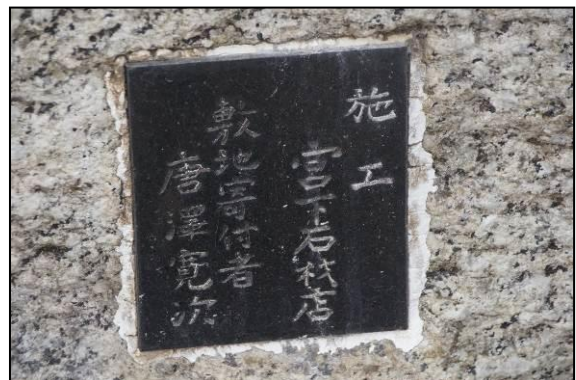 施工
宮下石材店
敷地寄付者
唐澤寛次